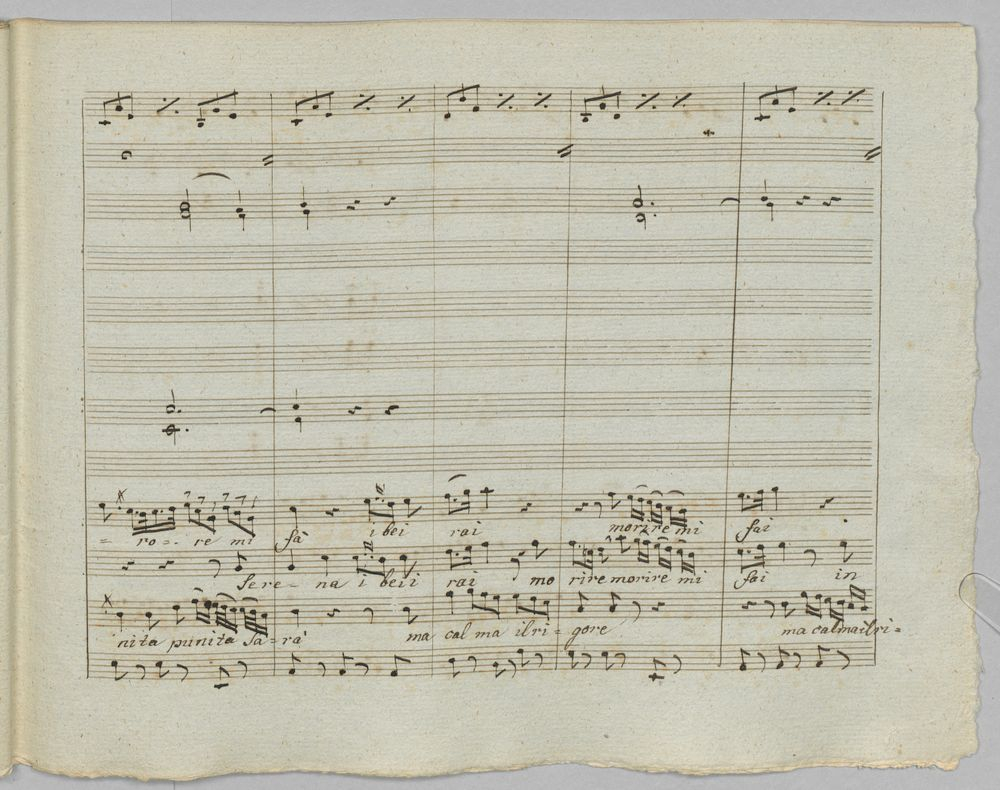 = ro =. re mi fà i bei rai morire mi fai
Sere = na i beii rai mo rire morire mi fai in
nita punita Sa = rà ma cal ma il ri = gore ma calmailri =